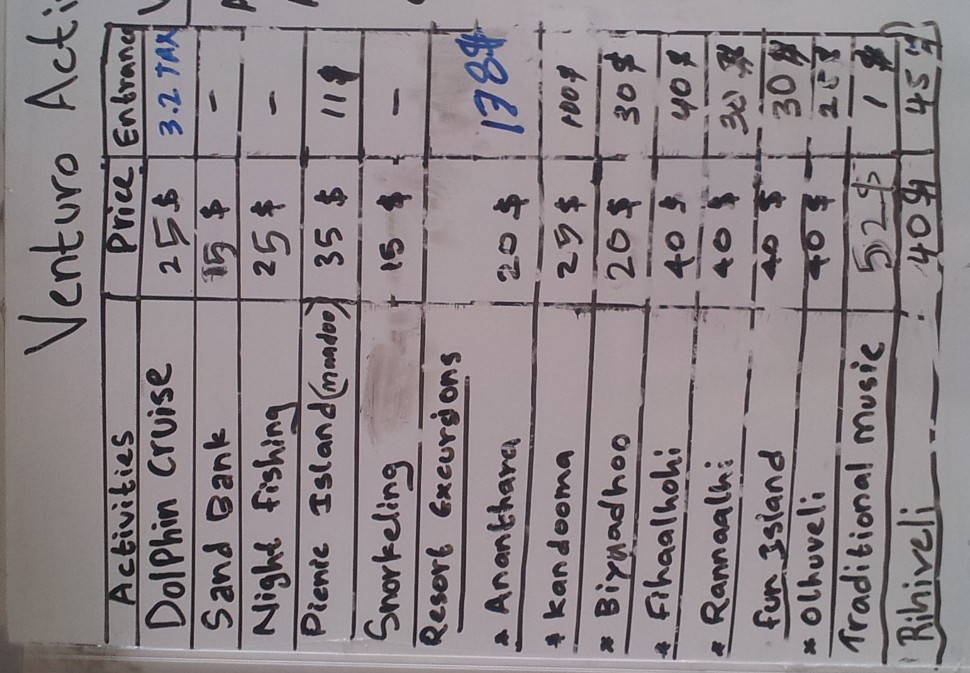 Venturo Acti
Activities Price Entrance
Dolphin Cruise 25 $ 3.2 TAX
Sand Bank 15 $ -
Night fishing 25 $ -
Picnic Island (maadoo) 35 $ 11 $
Snorkeling 15 $ -
Resort Excurdons
* Ananthara 20 $ 178$
* Kandooma 25 $ 100 $
* Biyyadhoo 20 $ 30 $
* Fihaalhohi 40 $ 40 $
* Rannaalhi 40 $ 30 $
Fun Island 40 $ 30 $
* Olhuveli 40 $ 25 $
Traditional music 52$ 1 $
Rihiveli 40$ 45 $